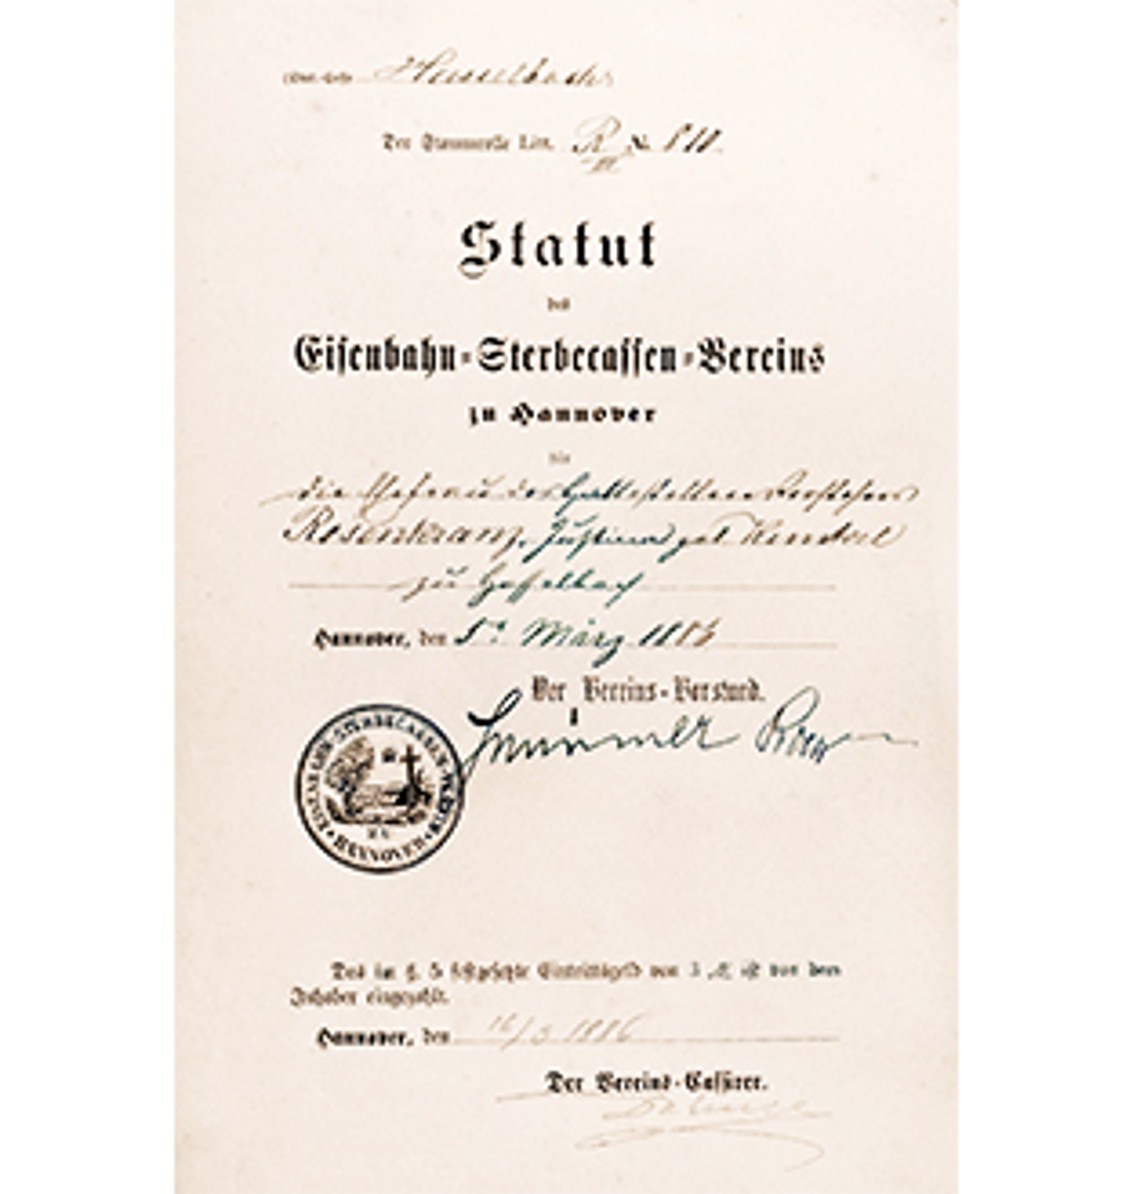 Hasselbach
Der Stammrolle Litr. R № 810.
III
Statut
des
Eisenbahn-Sterbecassen-Vereins
zu Hannover
für
die Ehefrau des Haltestellenvorstehers
Rosenkranz, Justine geb.
zu Hasselbach
Hannover, den 5t. März 1886
Der Vereins-Vorstand.
EISENBAHN-STERBECASSEN-VEREIN
HANNOVER
Das im §. 5 festgesetzte Eintrittsgeld von 3 ℳ ist von dem
Inhaber eingezahlt.
Hannover, den 16/3 1886
Der Vereins-Cassirer.